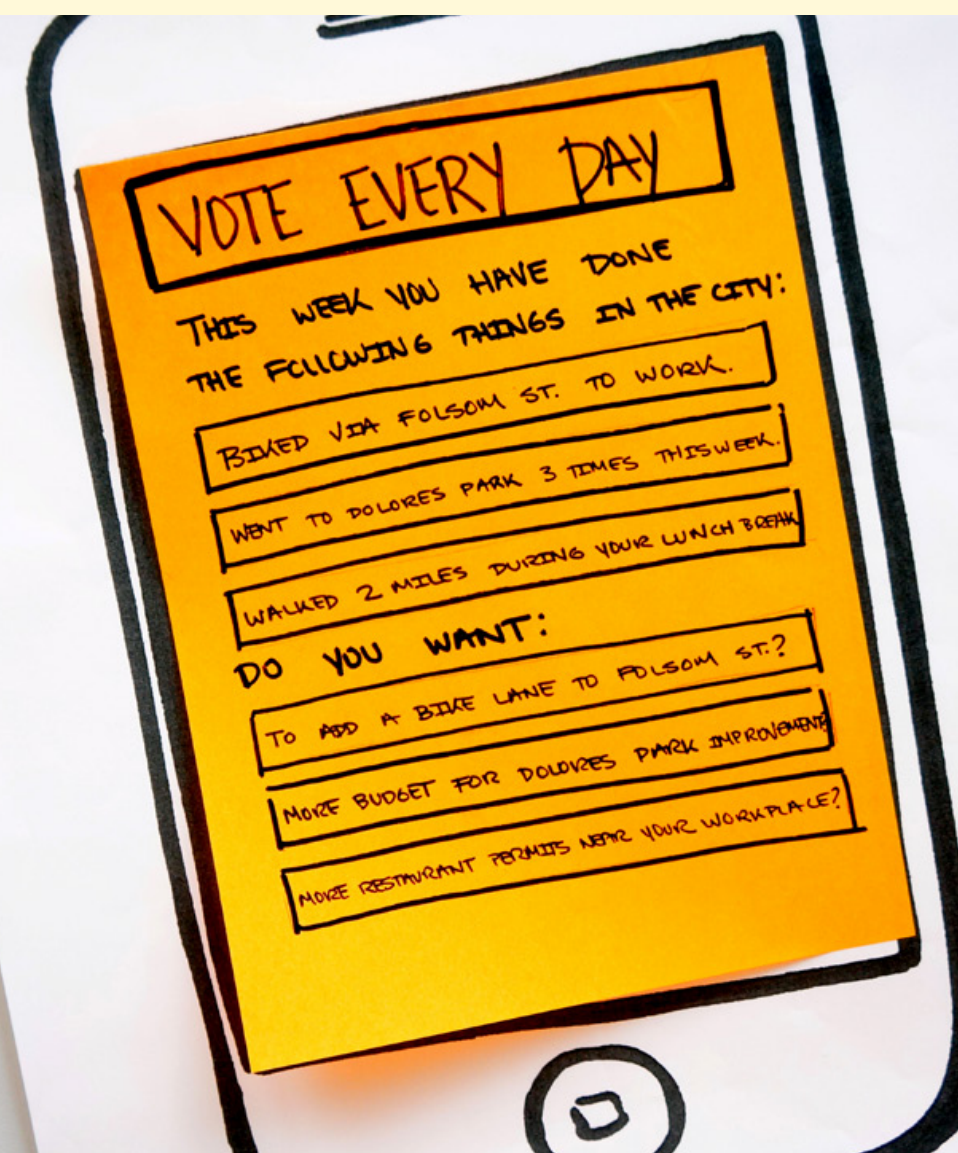 VOTE EVERY DAY
THIS WEEK YOU HAVE DONE
THE FOLLOWING THINGS IN THE CITY:
BIKED VIA FOLSOM ST. TO WORK.
WENT TO DOLORES PARK 3 TIMES THIS WEEK.
WALKED 2 MILES DURING YOUR LUNCH BREAK
DO YOU WANT:
TO ADD A BIKE LANE TO FOLSOM ST.?
MORE BUDGET FOR DOLORES PARK IMPROVEMENTS
MORE RESTAURANT PERMITS NEAR YOUR WORKPLACE?